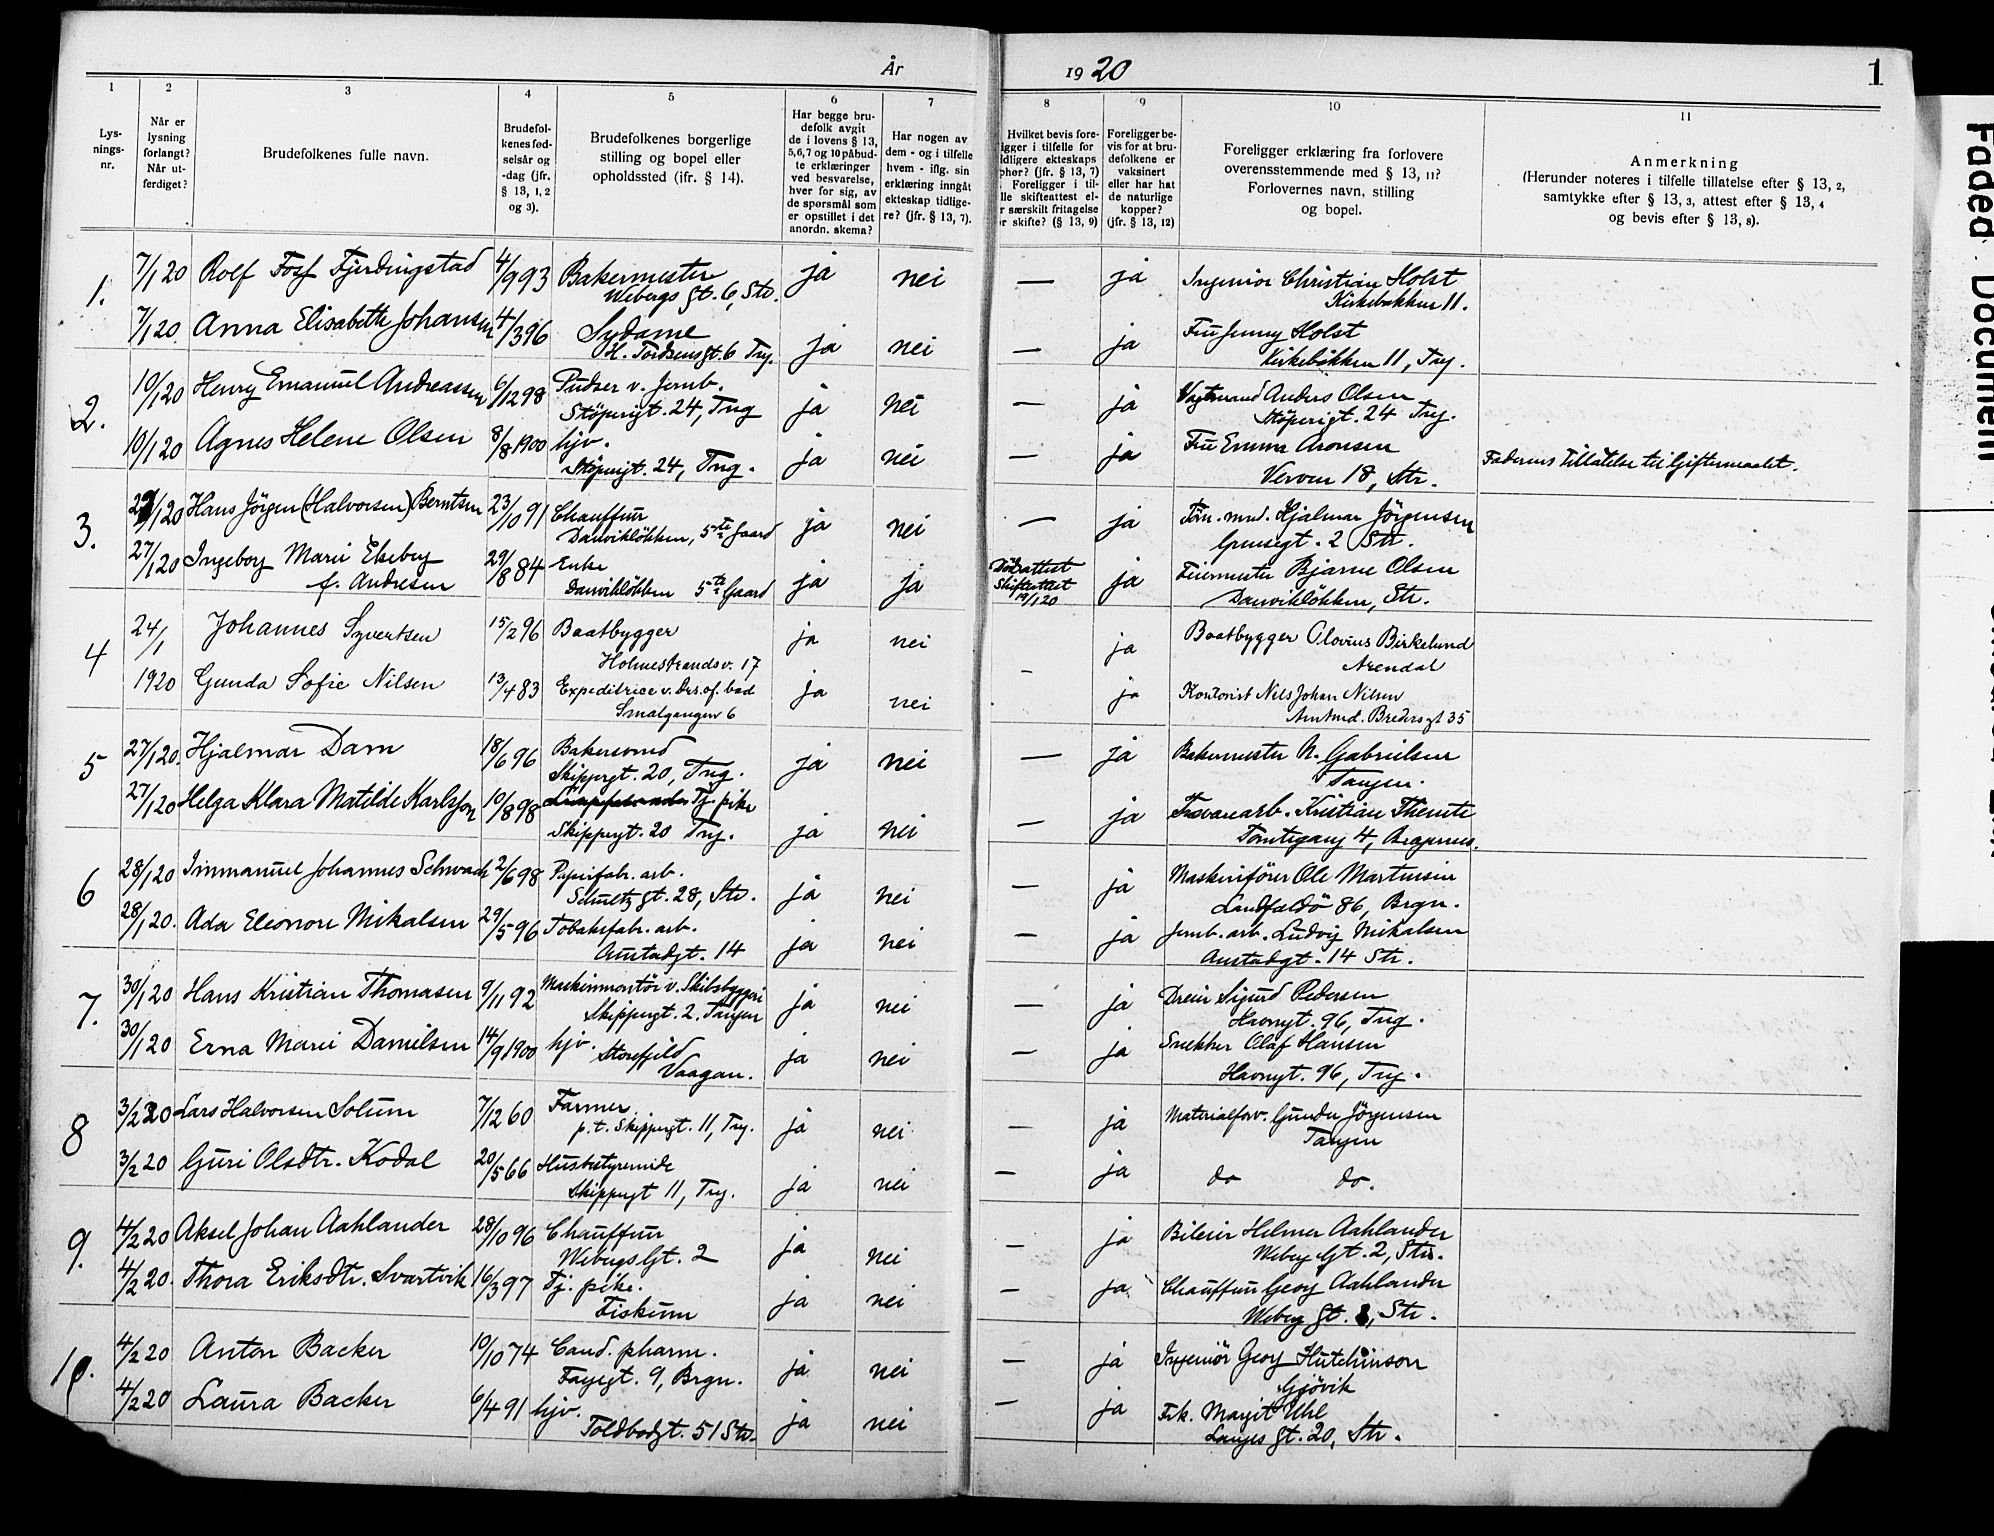 År 1920
1
1 2 3 4 5 6 7 8 9 10 11
Lys-
nings-
nr.
Når er
lysning
forlangt?
Når ut-
ferdiget?
Brudefolkenes fulle navn.
Brudefol-
kenes fød-
selsår og
-dag (jfr.
§ 13, 1, 2
og 3).
Brudefolkenes borgerlige
stilling og bopel eller
opholdssted (ifr. § 14).
Har begge bru-
defolk avgit
de i lovens § 13,
5,6,7 og 10 påbud-
te erklæringer
ved besvarelse,
hver for sig, av
de spørsmål som
er opstillet i det
anordn. skema?
Har nogen av
dem - og i tilfelle
hvem - iflg. sin
erklæring inngåt
ekteskap tidlige-
re? (jfr. § 13, 7).
Hvilket bevis fore-
igger i tilfelle for
idligere ekteskaps
phør? (jfr. § 13, 7)
Foreligger i til-
lle skifteattest el-
r særskilt fritagelse
r skifte? (§ 13, 9)
Foreligger be-
vis for at bru-
defolkene er
vaksinert
eller har hat
de naturlige
kopper?
(jfr. § 13, 12)
Foreligger erklæring fra forlovere
overensstemmende med § 13, 11?
Forlovernes navn, stilling
og bopel.
Anmerkning
(Herunder noteres i tilfelle tillatelse efter § 13, 2,
samtykke efter § 13, 3, attest efter § 13, 4
og bevis efter § 13, 8).
1. 7/1 20 Rolf Fosf Fjerdingstad 4/9 93 Bakermester ja nei — ja Ingeniör Christian Holst
Webergs gt. 6, Str. Kirkebakken 11.
7/1 20 Anna Elisabeth Johansen 4/3 96 Sydame ja nei — ja Fru Jenny Holst
H. Tordsensgt. 6 Tng. Kirkebakken 11, Tng.
2. 10/1 20 Henry Emanuel Andreassen 6/12 98 Pudser v. Jernb. ja nei — ja Vogtmand Anders Olsen
Støperigt. 24, Tng Støperigt. 24 Tng.
10/1 20 Agnes Helene Olsen 8/8 1900 hjv. ja nei — ja Fru Emma Aronsen Faderens Tillatelse til Giftermaalet.
Støperigt. 24, Tng. Verven 18, Str.
3. 27/1 20 Hans Jörgen (Halvorsen) Berntsen 23/10 91 Chauffeur ja nei — ja Töm. md. Hjalmar Jörgensen
Danvikløkken, 5te Gaard Grensegt. 2 Str.
27/1 20 Ingeborg Marie Ekeberg 29/8 84 Enke ja ja Dödsattest ja Feiermester Bjarne Olsen
f. Andresen Danvikløkken 5te Gaard Skifteattest 19/1 20 Danvikløkken, Str.
4 24/1 Johannes Syvertsen 15/2 96 Baatbygger ja nei ja Baatbygger Olovius Birkelund
Holmestrandsv. 17 - Arendal
1920 Gunda Sofie Nilsen 13/4 83 Expeditrice v. Drs. of. bad ja nei ja Kontorist Nils Johan Nilsen
Smalgangen 6 Amtmd. Bredersgt 35
5 27/1 20. Hjalmar Dam 18/6 96 Bakersvend ja nei — ja Bakermester N. Gabrielsen
Skippergt. 20, Tng. Tangen.
27/1 20 Helga Klara Matilde Karlsson 10/8 98 Tj. pike ja nei — ja Trævarearb. Kristian Themte
Skippergt. 20 Tng. Tomtegang 4, Bragernes.
6 28/1 20 Immanuel Johannes Schwach 2/6 98 Papirfabr. arb. ja nei — ja Maskinförer Ole Martinsen
Schultz gt. 28, Str. Landfaldö 86, Brgn.
28/1 20. Ada Eleonore Mikalsen 29/5 96 Tobaksfabr. arb. ja nei — ja Jernb. arb. Ludvig Mikalsen
Austadgt. 14 Austadgt. 14 Str.
7. 30/1 20 Hans Kristian Thomasen 9/11 92 Maskinmontör v. Skibsbyggeri ja nei — ja Dreier Sigurd Pedersen
Skippergt. 2. Tangen Havnegt. 96, Tng.
30/1 20 Erna Marie Danielsen 14/9 1900 hjv. ja nei — ja Snekker Olaf Hansen
Storefjeld Vaagan. Havnegt. 96, Tng.
8 3/2 20 Lars Halvorsen Solum 7/12 60 Farmer ja nei — ja Materialforv. Gunder Jörgensen
p. t. Skippergt. 11, Tng. Tangen
3/2 20 Guri Olsdtr. Kodal 20/5 66 Husbestyrerinde ja nei — ja do do.
Skippergt 11, Tng.
9. 4/2 20 Aksel Johan Aahlander 28/10 96 Chauffeur ja nei — ja Bileier Helmer Aahlander
Webergs Gt. 2 Weberg Gt. 2, Str.
4/2 20. Thora Eriksdtr. Svartvik 16/3 97 Tj. pike. ja nei — ja Chauffeur Georg Aahlander
Fiskum Weberg Gt. 2, Str.
10. 4/2 20 Anton Backer 10/10 74 Cand. pharm. ja nei — ja Ingeniör Georg Hutchinson
Fayegt. 9, Brgn. Gjövik
4/2 20 Laura Backer 6/4 91 hjv. ja nei — ja Frk. Margit Uhl
Toldbodgt. 51 Str. Langes gt. 20, Str.
Faded Document